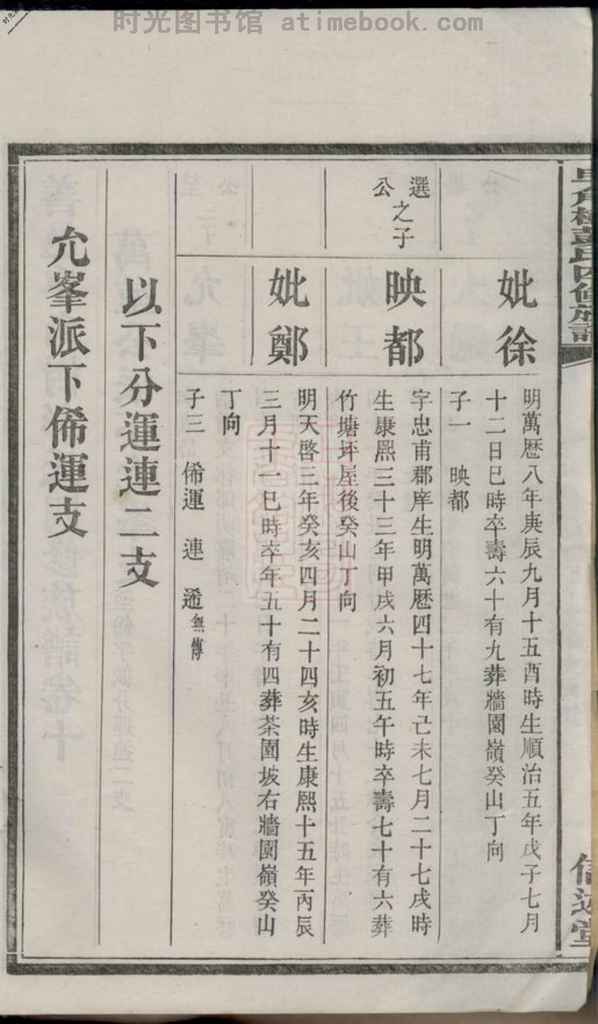 时光图书馆 - atimebook.com
妣徐
明萬曆八年庚辰九月十五酉時生順治五年戊子七月
十二日巳時卒壽六十有九葬牆園嶺癸山丁向
子一 映都
選公之子
映都
字忠甫郡庠生明萬曆四十七年己未七月二十七戌時
生康熙三十三年甲戌六月初五午時卒壽七十有六葬
竹塘坪屋後癸山丁向
妣鄭
明天啓三年癸亥四月二十四亥時生康熙十五年丙辰
三月十一巳時卒年五十有四葬茶園坡右牆園嶺癸山
丁向
子三 俙運 連 逓無傳
以下分運連二支
允峯派下俙運支